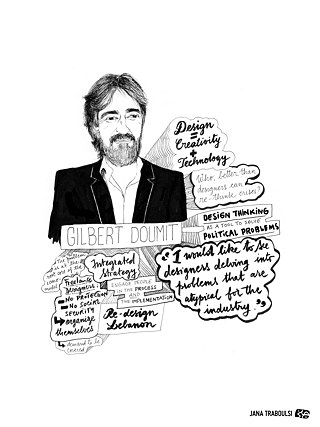 Design
=
Creativity
+
Technology
Who, better than
designers can
re-think crises?
DESIGN THINKING
AS A TOOL TO SOLVE
POLITICAL PROBLEMS
GILBERT DOUMIT
"I would like to see
designers delving into
problems that are
atypical for the
industry."
Integrated
Strategy
ENGAGE PEOPLE
IN THE PROCESS
AND
THE IMPLEMENTATION
Re-design
Lebanon
Freelance
Designers:
NO PROTECTION
NO SOCIAL
SECURITY
organize
themselves
demand to be
covered
JANA TRABOULSI